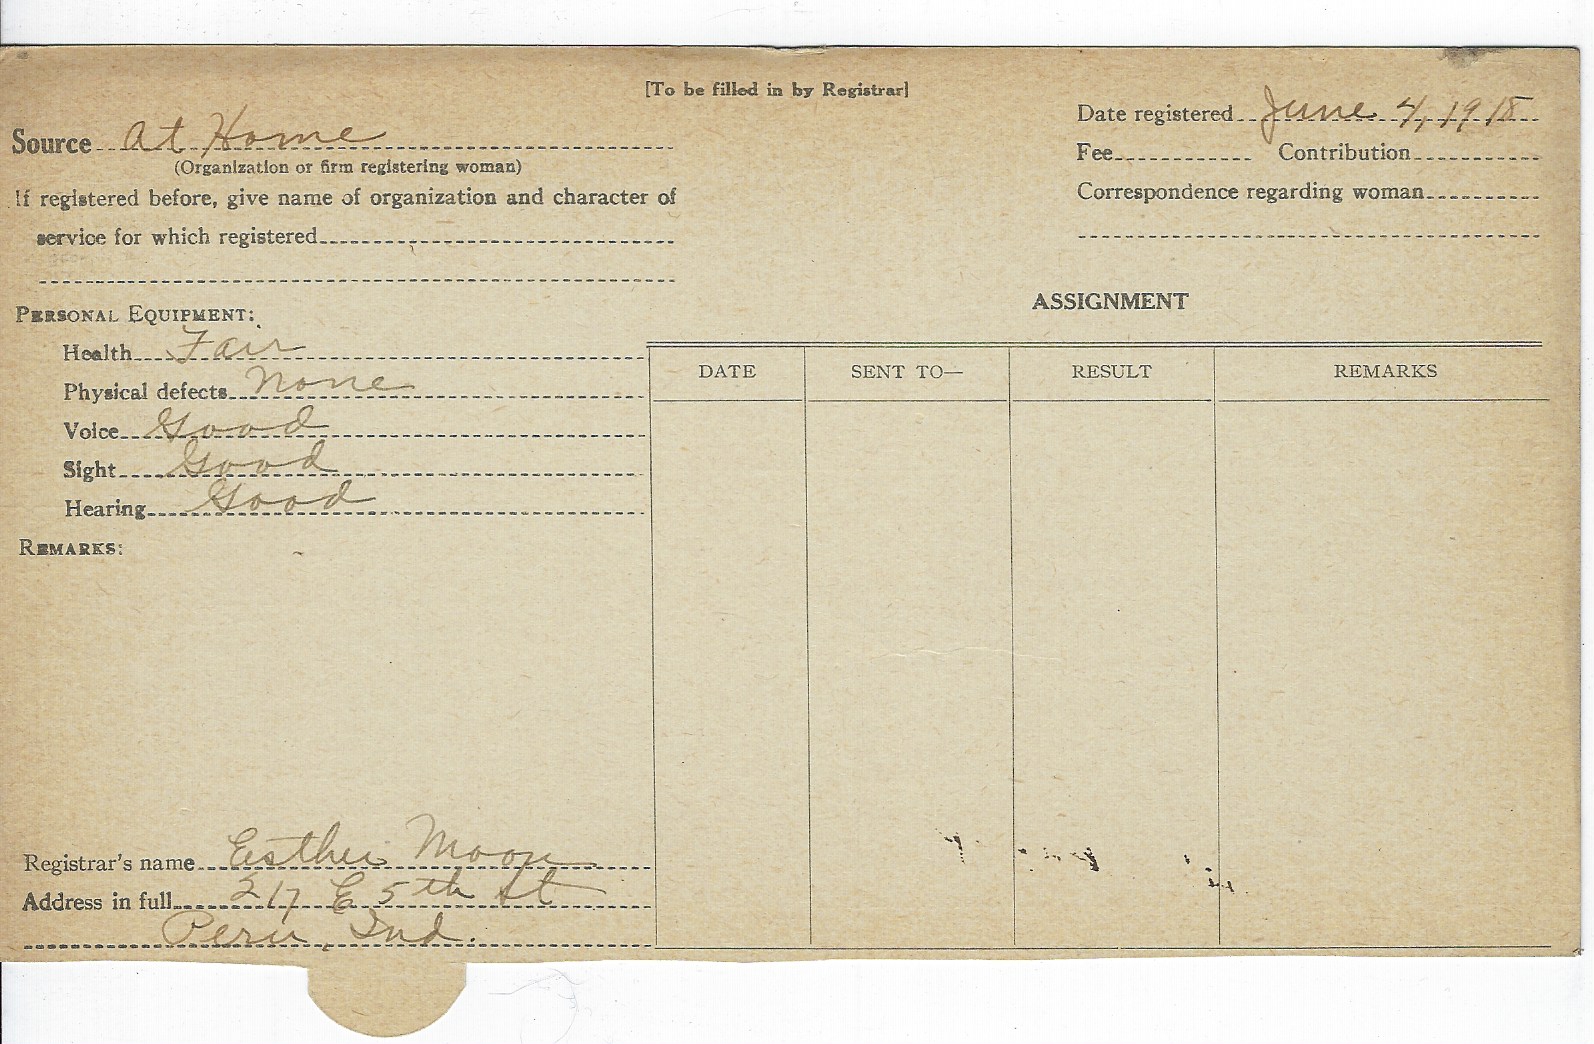 [To be filled in by Registrar]
Source At Home
(Organization or firm registering woman)
If registered before, give name of organization and character of
service for which registered
Date registered June 4, 1918
Fee Contribution
Correspondence regarding woman
PERSONAL EQUIPMENT:
Health Fair
Physical defects None
Voice Good
Sight Good
Hearing Good
REMARKS:
Registrar's name Esther Moon
Address in full 217 E 5th St
Peru, Ind.
ASSIGNMENT
DATE SENT TO— RESULT REMARKS